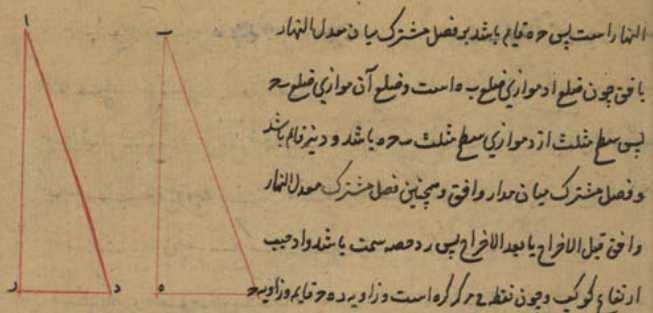 النهار است پس ح ه قایم باشد بر فصل مشترک میان معدل النهار
با فق چون ضلع ا د موازی ضلع ب ه است و ضلع آن موازی ضلع ب ح
پس سطح مثلث ا ز د موازی سطح مثلث ب ح ه باشد و د نیز قایم باشد
و فصل مشترک میان مدار و افق و همچنین فصل مشترک معدل النهار
و افق قبل الاخراج یا بعد الاخراج پس ر د حصه سمت باشد و ا د جیب
ارتفاع کوکب و چون نقطه ح مرکز کره است و زاویه ب ه ح قایم و زاویه ح
ا
ب
ر
د
ه